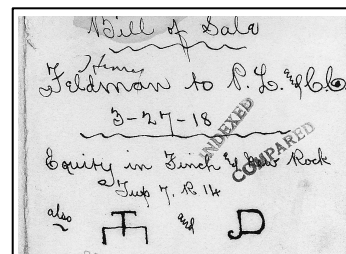 Bill of Sale
Henry
Feldman to P. L. & C. Co
3-27-18
INDEXED
COMPARED
Equity in Finch & Saw Rock
Twp 7. R 14
also and